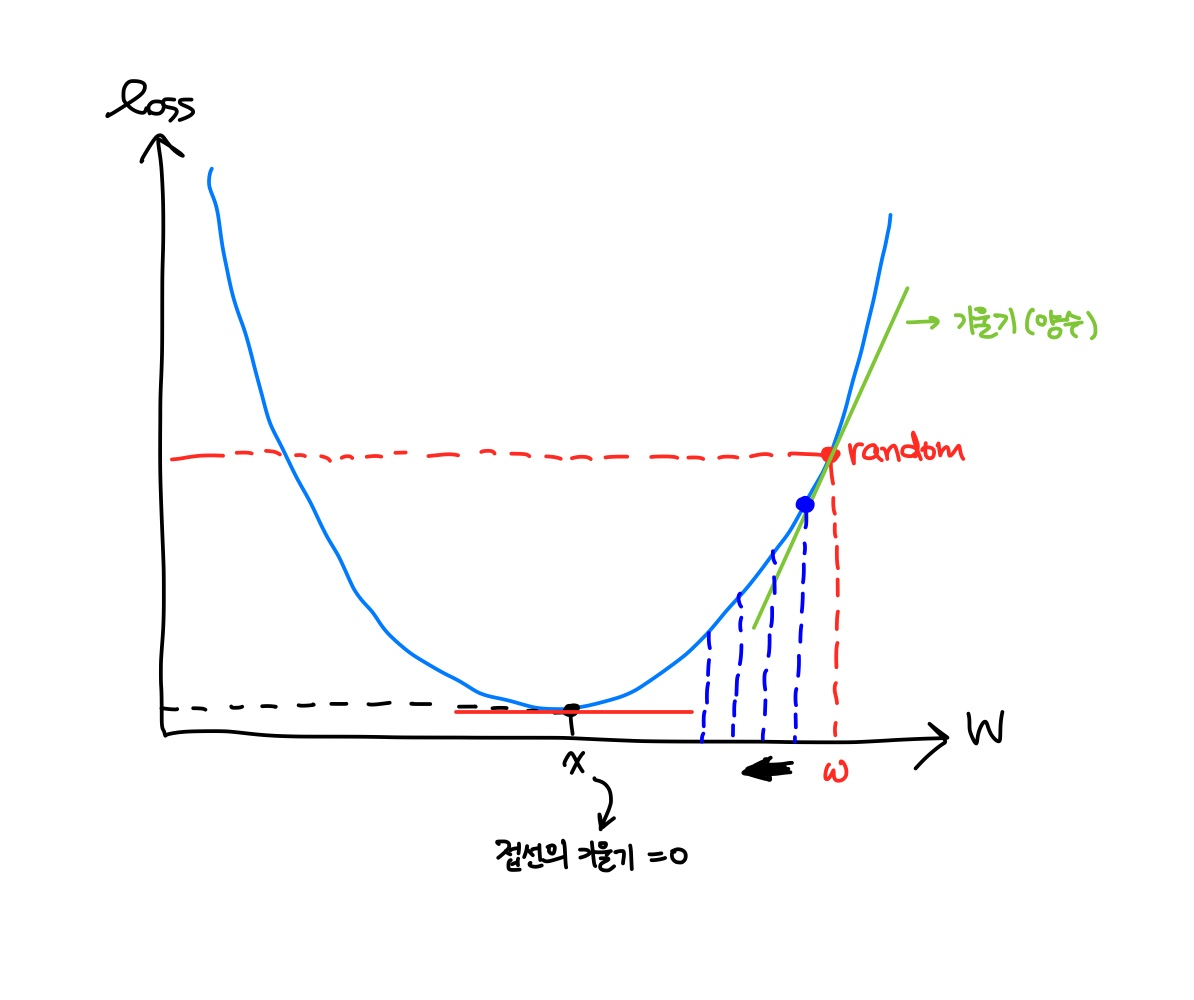 loss
기울기 (양수)
random
W
x
ω
접선의 기울기 = 0